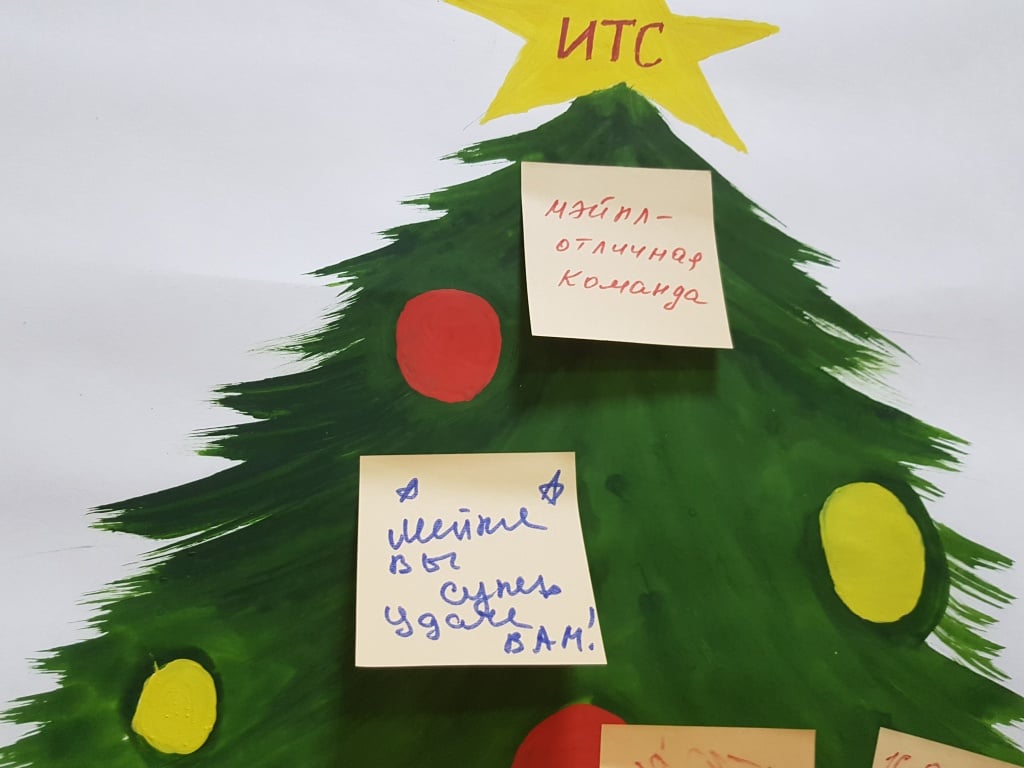 ИТС
МЭЙПЛ-
ОТЛИЧНАЯ
КОМАНДА
Мейпл
ВЫ
супер
Удачи
ВАМ!